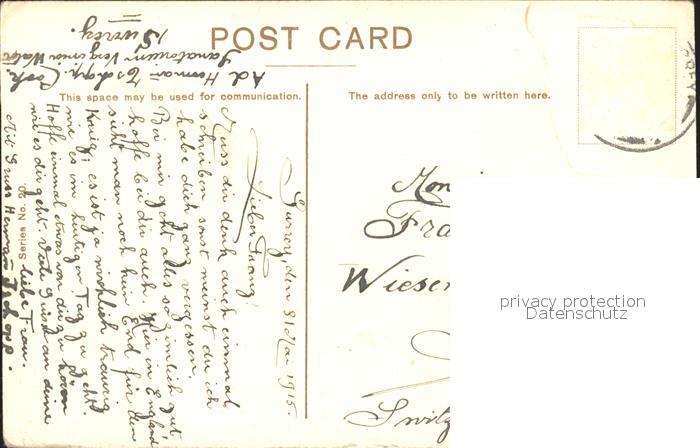 POST CARD
This space may be used for communication.
The address only to be written here.
Ad. Herman Tschopp. Cook.
Sanatorium Verginia Water
Surrey.
Surrey, den 31 Mai 1915.
Lieber Franz!
Muss dir denk auch einmal
schreiben, sonst meinst du ich
habe dich ganz vergessen.
Bei mir geht alles so zimlich gut
hoffe bei dir auch. Hier in England
sieht man noch kein End für den
Krieg, es ist ja wirklich traurig
wie es im heutigen Tag zu geht.
Hoffe einmal etwas von dir zu hören
wie es dir geht. Viele Grüsse an deine
liebe Frau.
Mit Gruss Herman Tschopp.
Series No. 20.
Mon
Fra
Wiesen
Switz
privacy protection
Datenschutz